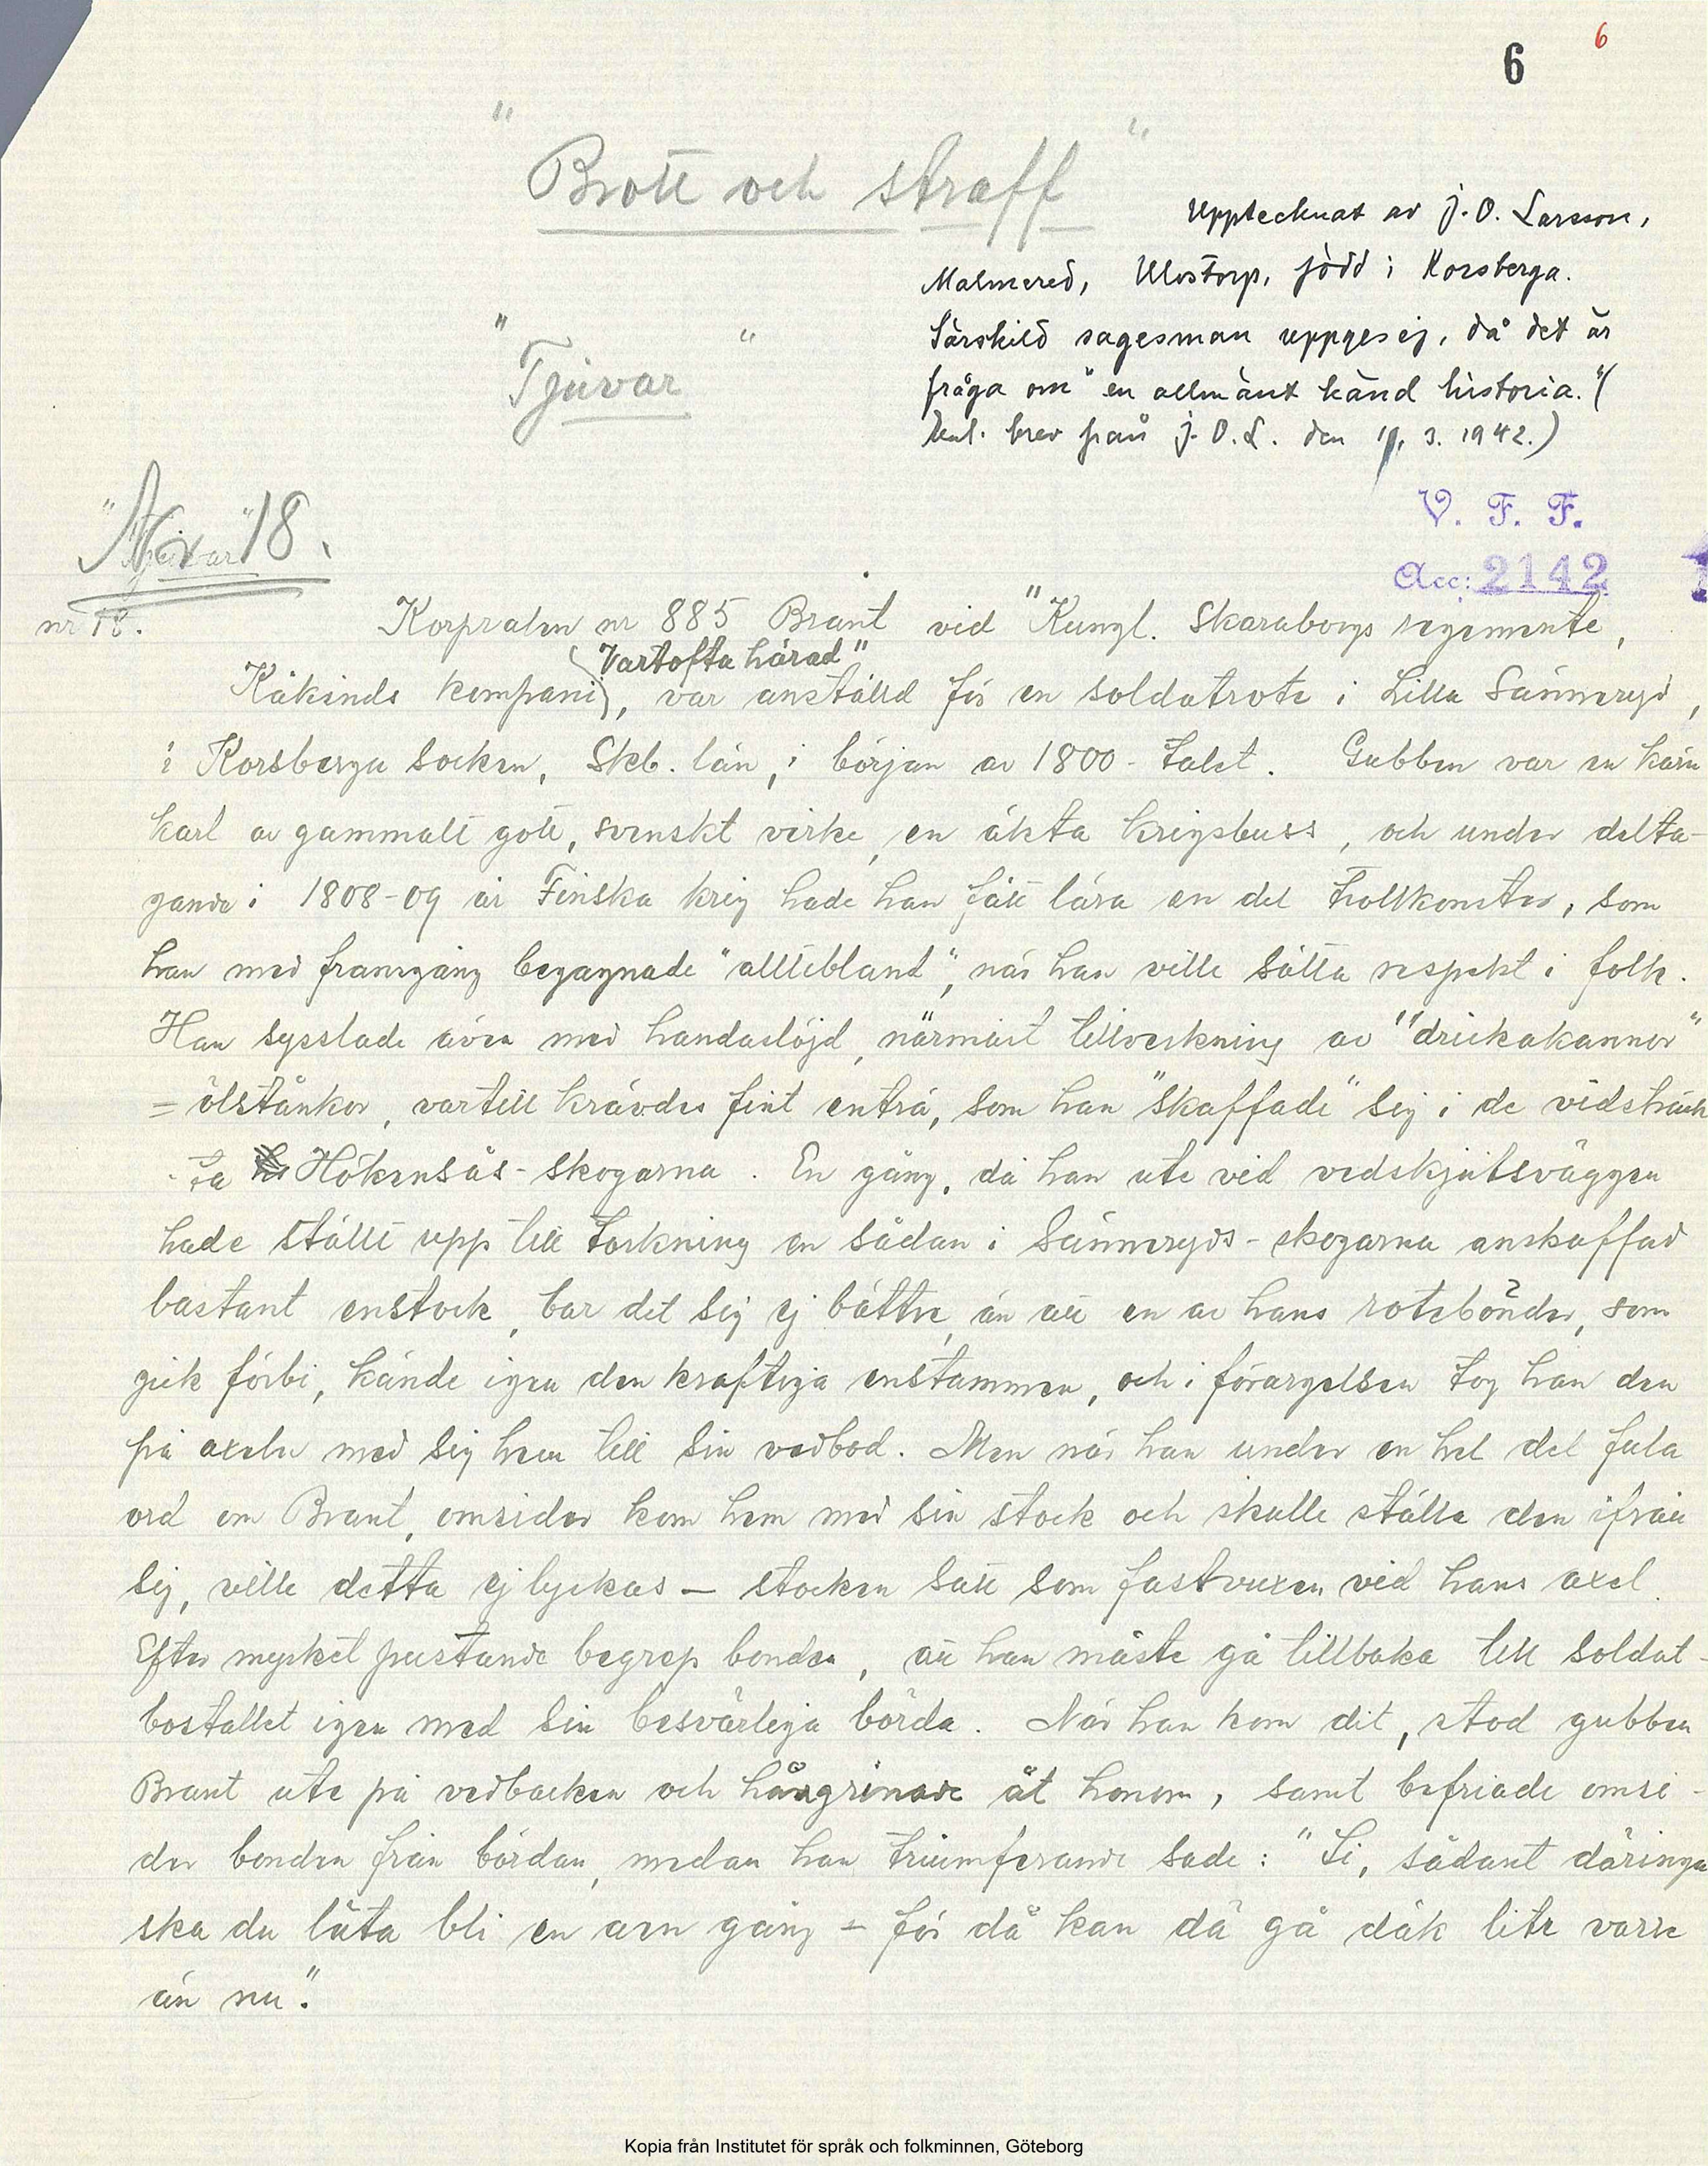 6 6
"Brott och straff"
Upptecknat av J. O. Larsson,
Malmered, Ulvstorp, född i Korsberga.
Särskild sagesman uppges ej, då det är
fråga om "en allmänt känd historia." (
Enl. brev från J. O. L. den 11. 3. 1942.)
"Tjuvar"
V. F. F.
Acc: 2142
"Tjuvar"
Nr 18.
nr 18.
Korpralen nr 885 Brant vid "Kungl. Skaraborgs regemente,
(Vartofta härad"
Kåkinds kompani), var anställd för en soldatrote i Lilla Sänneryd,
i Korsberga socken, Skb. län, i början av 1800-talet. Gubben var en kärn
karl av gammalt gott, svenskt virke, en äkta krigsbuss, och under delta-
gande i 1808-09 år Finska krig hade han fått lära en del trollkonster, som
han med framgång begagnade "alltebland", när han ville sätta respekt i folk.
Han sysslade även med handaslöjd, närmast tillverkning av "drickakannor"
= ölstånkor, vartill krävdes fint enträ, som han "skaffade" sig i de vidsträck
ta Hökensås-skogarna. En gång, då han ute vid vedskjulsväggen
hade ställt upp till torkning en sådan i Sänneryds-skogarna anskaffad
bastant enstock, bar det sig ej bättre, än att en av hans rotebönder, som
gick förbi, kände igen den kraftiga enstammen, och i förargelsen tog han den
på axeln med sig hem till sin vedbod. Men när han under en hel del fula
ord om Brant, omsider kom hem med sin stock och skulle ställa den ifrån
sig, ville detta ej lyckas – stocken satt som fastvuxen vid hans axel.
Efter mycket pustande begrep bonden, att han måste gå tillbaka till soldat-
bostället igen med sin besvärliga börda. När han kom dit, stod gubben
Brant ute på vedbacken och hångrinade åt honom, samt befriade omsi-
der bonden från bördan, medan han triumferande sade: "Si, sådant däringa
ska du låta bli en aen gång – för då kan dä gå däk lite varre
än nu."
Kopia från Institutet för språk och folkminnen, Göteborg